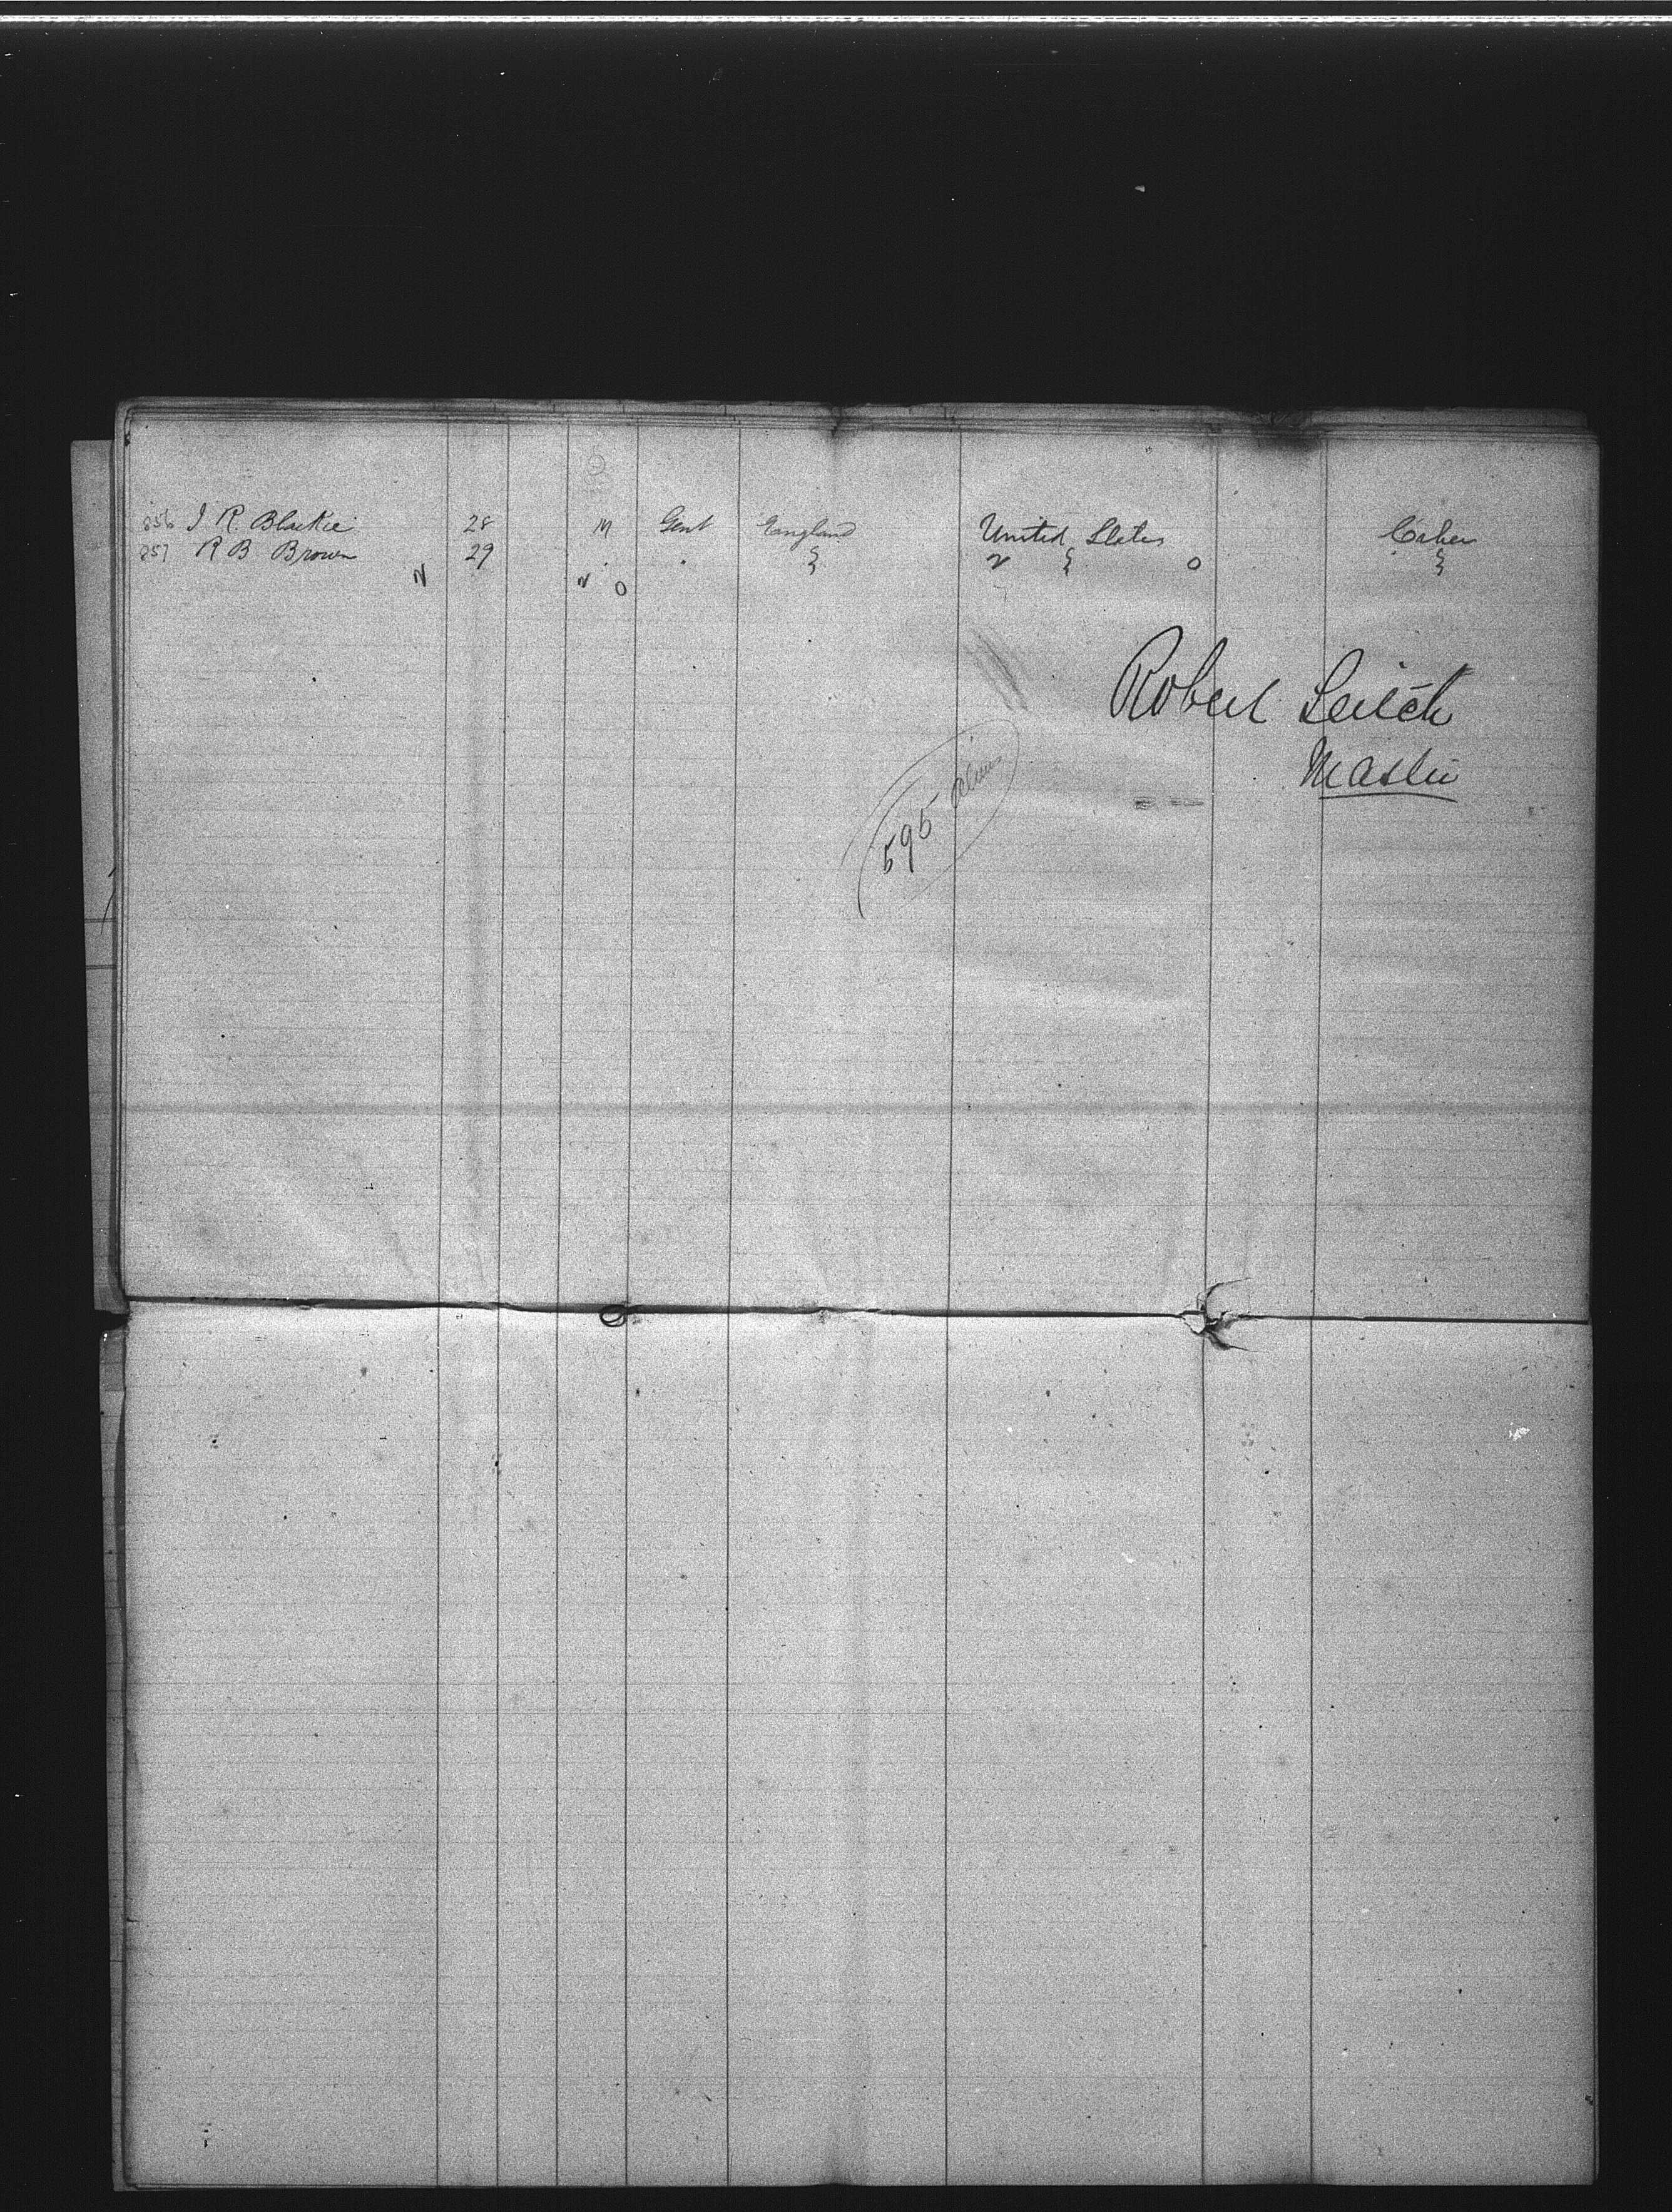 856 J R. Blackie 28 M Gent England United States Cabin
857 R B Brown 29 " " " "
N N O N O
Robert Leitch
Master
595 aliens